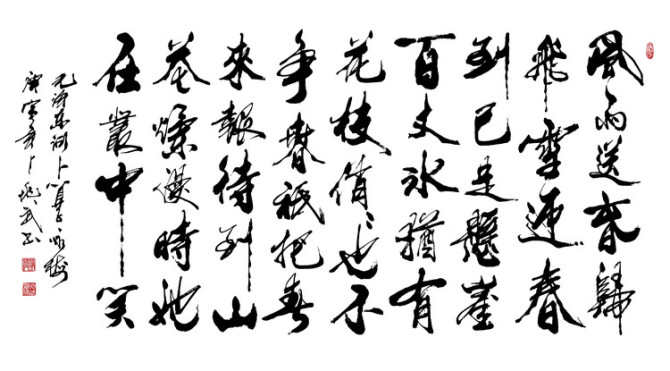 風雨送春歸
飛雪迎春
到已是懸崖
百丈冰猶有
花枝俏々也不
爭春祇把春
來報待到山
花爛漫時她
在叢中笑
毛澤東詞卜算子詠梅
庚寅年 書